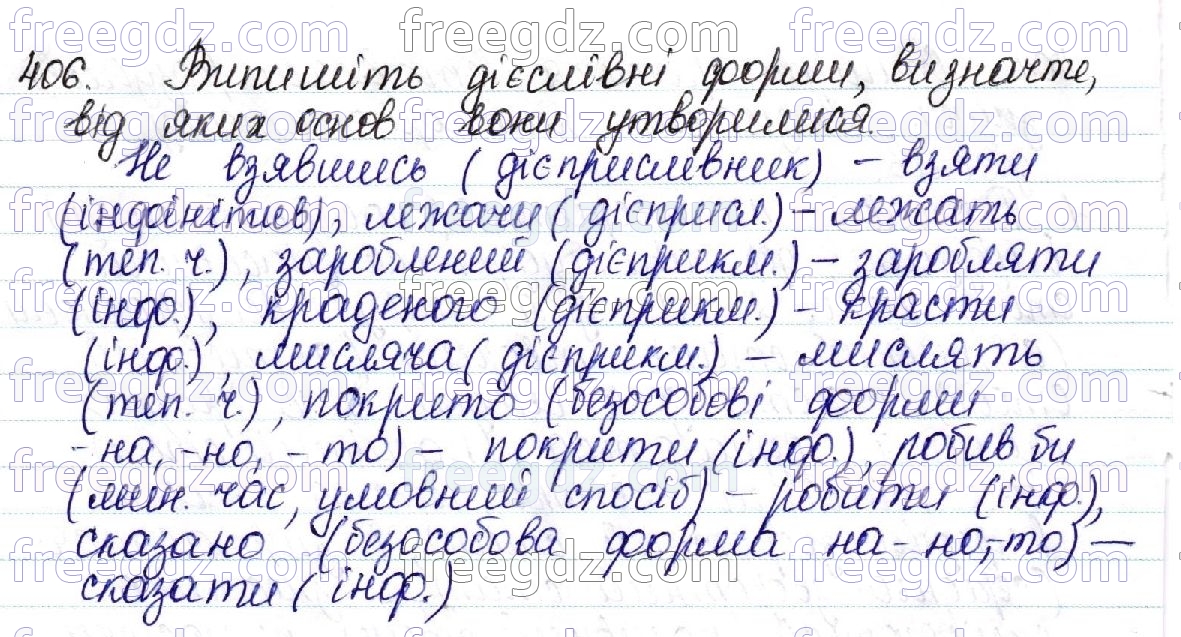 406. Випишіть дієслівні форми, визначте,
від яких основ вони утворилися.
Не взявшись (дієприслівник) – взяти
(інфінітив), лежачи (дієприсл.) – лежать
(теп. ч.), зароблений (дієприкм.) – заробляти
(інф.), краденого (дієприкм.) – красти
(інф.), мисляча (дієприкм.) – мислять
(теп. ч.), покрито (безособові форми
-на, -но, -то) – покрити (інф.), робив би
(мин. час, умовний спосіб) – робити (інф.),
сказано (безособова форма на -но, -то) –
сказати (інф.)